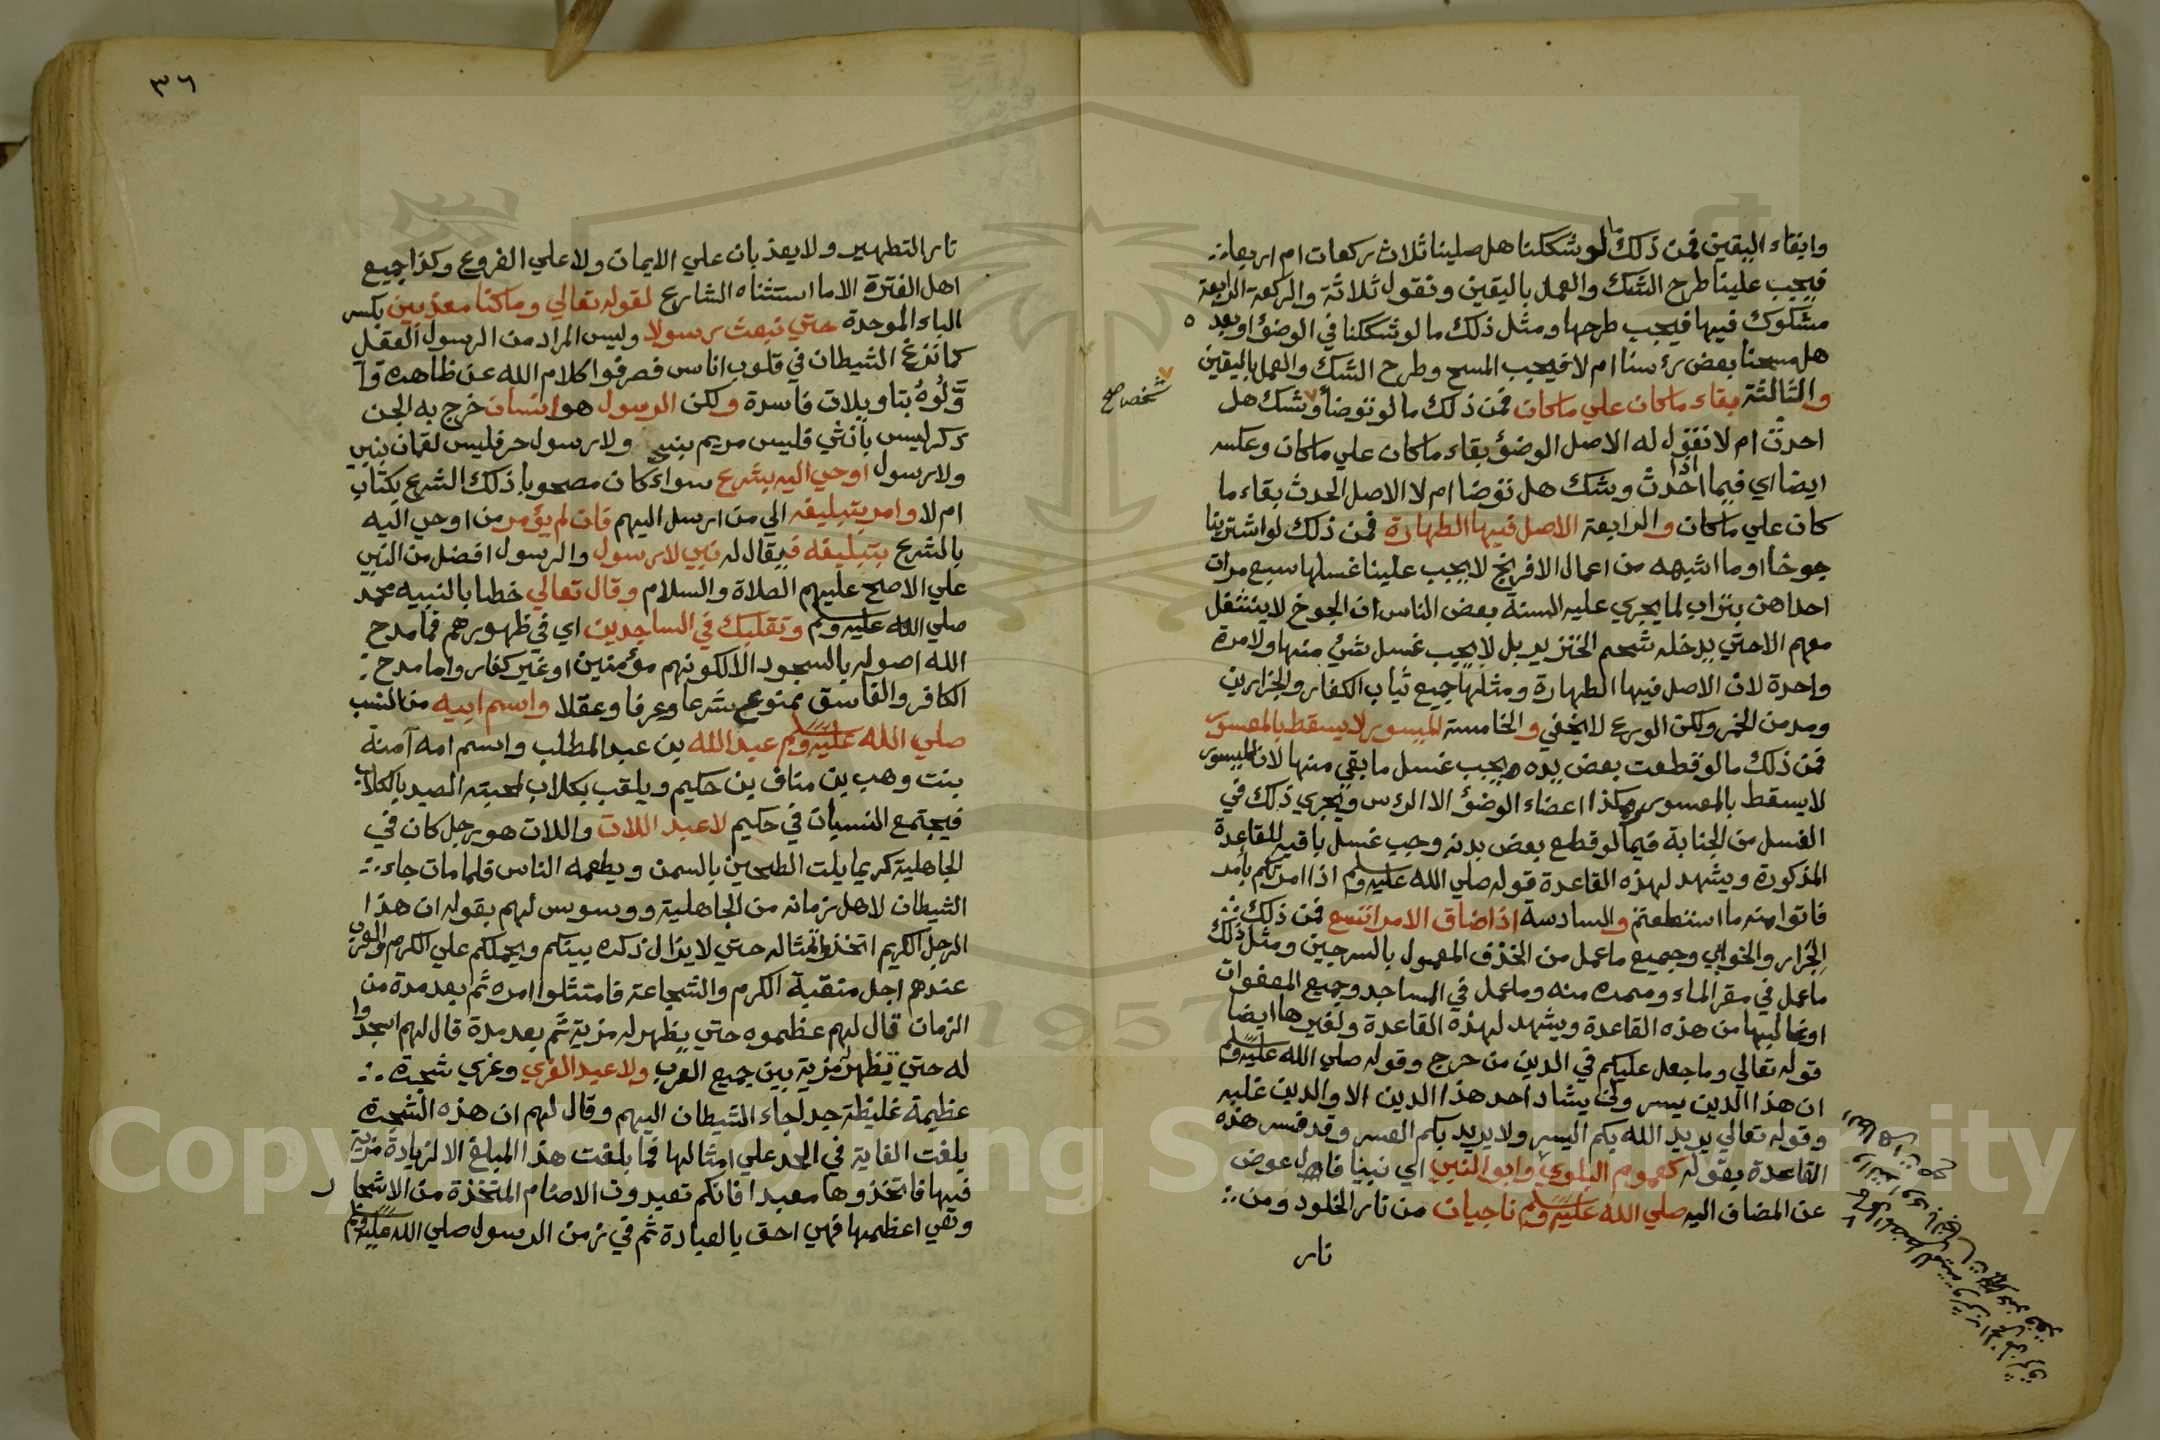 وابقاء اليقين فمن ذلك ما لو شككنا هل صلينا ثلاث ركعات ام اربعا
فيجب علينا طرح الشك والعمل باليقين ونقول ثلاثة والركعة الرابعة
مشكوك فيها فيجب طرحها ومثل ذلك ما لو شككنا في الوضؤ او بعده
هل مسحنا بعض رؤسنا ام لا فيجب المسح وطرح الشك والعمل باليقين
والثالثة بقاء ماكان علي ماكان فمن ذلك ما لو توضأ وشك هل
شخص صح
احدث ام لا نقول له الاصل الوضؤ بقاء ماكان علي ماكان وعكسه
ايضا اي فيما اذا احدث وشك هل توضا ام لا الاصل الحدث بقاء ما
كان علي ماكان والرابعة الاصل فيها الطهارة فمن ذلك لو اشترينا
جوخا او ما اشبهه من اعمال الافرنج لا يجب علينا غسلها سبع مرات
احداهن بتراب لما يجري علي السنة بعض الناس ان الجوخ لا يتنثقل
معهم الا حتي يدخله شحم الخنزير بل لا يجب غسل شئ منها ولا مرة
واحدة لان الاصل فيها الطهارة ومثلها جميع ثياب الكفار والجزارين
ومدمن الخمر ولكن الورع لا يخفي والخامسة الميسور لا يسقط بالمعسور
فمن ذلك ما لو قطعت بعض يده ويجب غسل ما بقي منها لان الميسور
لا يسقط بالمعسور وهكذا اعضاء الوضؤ الا الرءس ويجري ذلك في
الغسل من الجنابة فيما لو قطع بعض بدنه وجب غسل باقيه للقاعدة
المذكورة ويشهد لهذه القاعدة قوله صلي الله عليه وسلم اذا امرتكم بأمر
فاتوا منه ما استطعتم والسادسة اذا ضاق الامر اتسع فمن ذلك
الجرار والخوابي وجميع ما عمل من الخذف المعمول بالسرجين ومثل ذلك
ماعمل في مقر الماء وممره منه وماعمل في المساجد وجميع المعفوات
او غالبها من هذه القاعدة ويشهد لهذه القاعدة ولغيرها ايضا
قوله تعالي وما جعل عليكم في الدين من حرج وقوله صلي الله عليه وسلم
ان هذا الدين يسر ولن يشاد احد هذا الدين الا والدين غلبه
وقوله تعالي يريد الله بكم اليسر ولا يريد بكم العسر وقد فسر هذه
القاعدة بقوله كعموم البلوي وابو النبي اي نبينا فال عوض
عن المضاف اليه صلي الله عليه وسلم ناجيان من نار الخلود ومن
نار
٣٦
نار التطهير ولا يعذبان علي الايمان ولا علي الفروع وكذا جميع
اهل الفترة الا ما استثناه الشارع لقوله تعالي وماكنا معذبين بكسر
الباء الموحدة حتي نبعث رسولا وليس المراد من الرسول العقل
كما نزغ الشيطان في قلوب اناس فصرفوا كلام الله عن ظاهره وأ
وَّلُوهُ بتاويلات فاسدة ولكن الرسول هو انسان خرج به الجن
ذكر ليس بأنثي فليس مريم بنبي ولا رسول حر فليس لقمان بنبي
ولا رسول اوحي اليه بشرع سواء كان مصحوبا ذلك الشرع بكتاب
ام لا وامر بتبليغه الي من ارسل اليهم فان لم يؤمر من اوحي اليه
بالشرع بتبليغه فيقال له نبي لا رسول والرسول افضل من النبي
علي الاصح عليهم الصلاة والسلام وقال تعالي خطابا لنبيه محمد
صلي الله عليه وسلم وتقلبك في الساجدين اي في ظهورهم فما مدح
الله اصوله بالسجود الا لكونهم مؤمنين او غير كفار واما مدح
الكافر والفاسق ممنوع شرعا وعرفا وعقلا واسم ابيه من النسب
صلي الله عليه وسلم عبد الله بن عبد المطلب واسم امه آمنة
بنت وهب بن مناف بن حكيم ويلقب بكلاب لمحبته الصيد بالكلاب
فيجتمع النسبان في حكيم لا عبد اللات واللات هو رجل كان في
الجاهلية كريما يلت الطحين بالسمن ويطعمه الناس فلما مات جاء
الشيطان لاهل زمانه من الجاهلية ووسوس لهم بقوله ان هذا
الرجل الكريم اتخذوا تمثاله حتي لا يزال ذكره بينكم ويحملكم علي الكرم والعرب
عندهم اجل منقبة الكرم والشجاعة فامتثلوا امره ثم بعد مدة من
الزمان قال لهم عظموه حتي يظهر له مزية ثم بعد مدة قال لهم اسجدوا
له حتي تظهر مزية بين جميع العرب ولا عبد العزي وعزي شجرة
عظيمة غليظة جدا جاء الشيطان اليهم وقال لهم ان هذه الشجرة
بلغت الغاية في الحد علي امثالها فما بلغت هذا المبلغ الا لزيادة مزية
فيها فاتخذوها معبدا فانكم تعبدون الاصنام المتخذة من الاشجار
وهي اعظمها فهي احق بالعبادة ثم في زمن الرسول صلي الله عليه وسلم